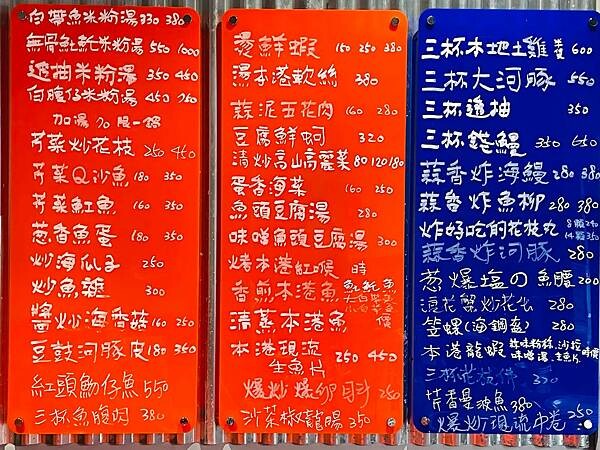 白帶魚米粉湯 330 380
無骨魠魠米粉湯 550 1000
透抽米粉湯 350 450
白腹仔米粉湯 450 750
加湯70 限一鍋
芹菜炒花枝 250 450
芹菜Q沙魚 180 350
芹菜魟魚 160 350
葱香魚蛋 180 350
炒海瓜子 250
炒魚雜 300
醬炒海香菇 160 250
豆鼓河豚皮 180 350
紅頭魩仔魚 550
三杯魚腹肉 380
燙鮮蝦 150 250 380
湯本港軟絲 380
蒜泥五花肉 160 280
豆腐鮮蚵 320
清炒高山高麗菜 80 120 180
蛋香海菜 160 250
魚頭豆腐湯 280
味噌魚頭豆腐湯 300
烤本港紅喉 時
香煎本港魚
清蒸本港魚 價
本港現流生魚片 250 450
爆炒 250
沙茶椒龍腸 350
三杯本地土雞 600
三杯大河豚 550
三杯透抽 350
三杯 鰻 350 650
蒜香炸海鰻 280 380
蒜香炸魚柳 280 380
炸好吃的花枝丸 8顆240 14顆350
蒜香炸河豚 280
葱爆塩の魚腰 200
浪花蟹炒花 280
螺(海鋼盔) 280
本港龍蝦 味噌湯.生魚片 時價
三杯花枝
芹香曼波魚 380
爆炒現流中卷 250